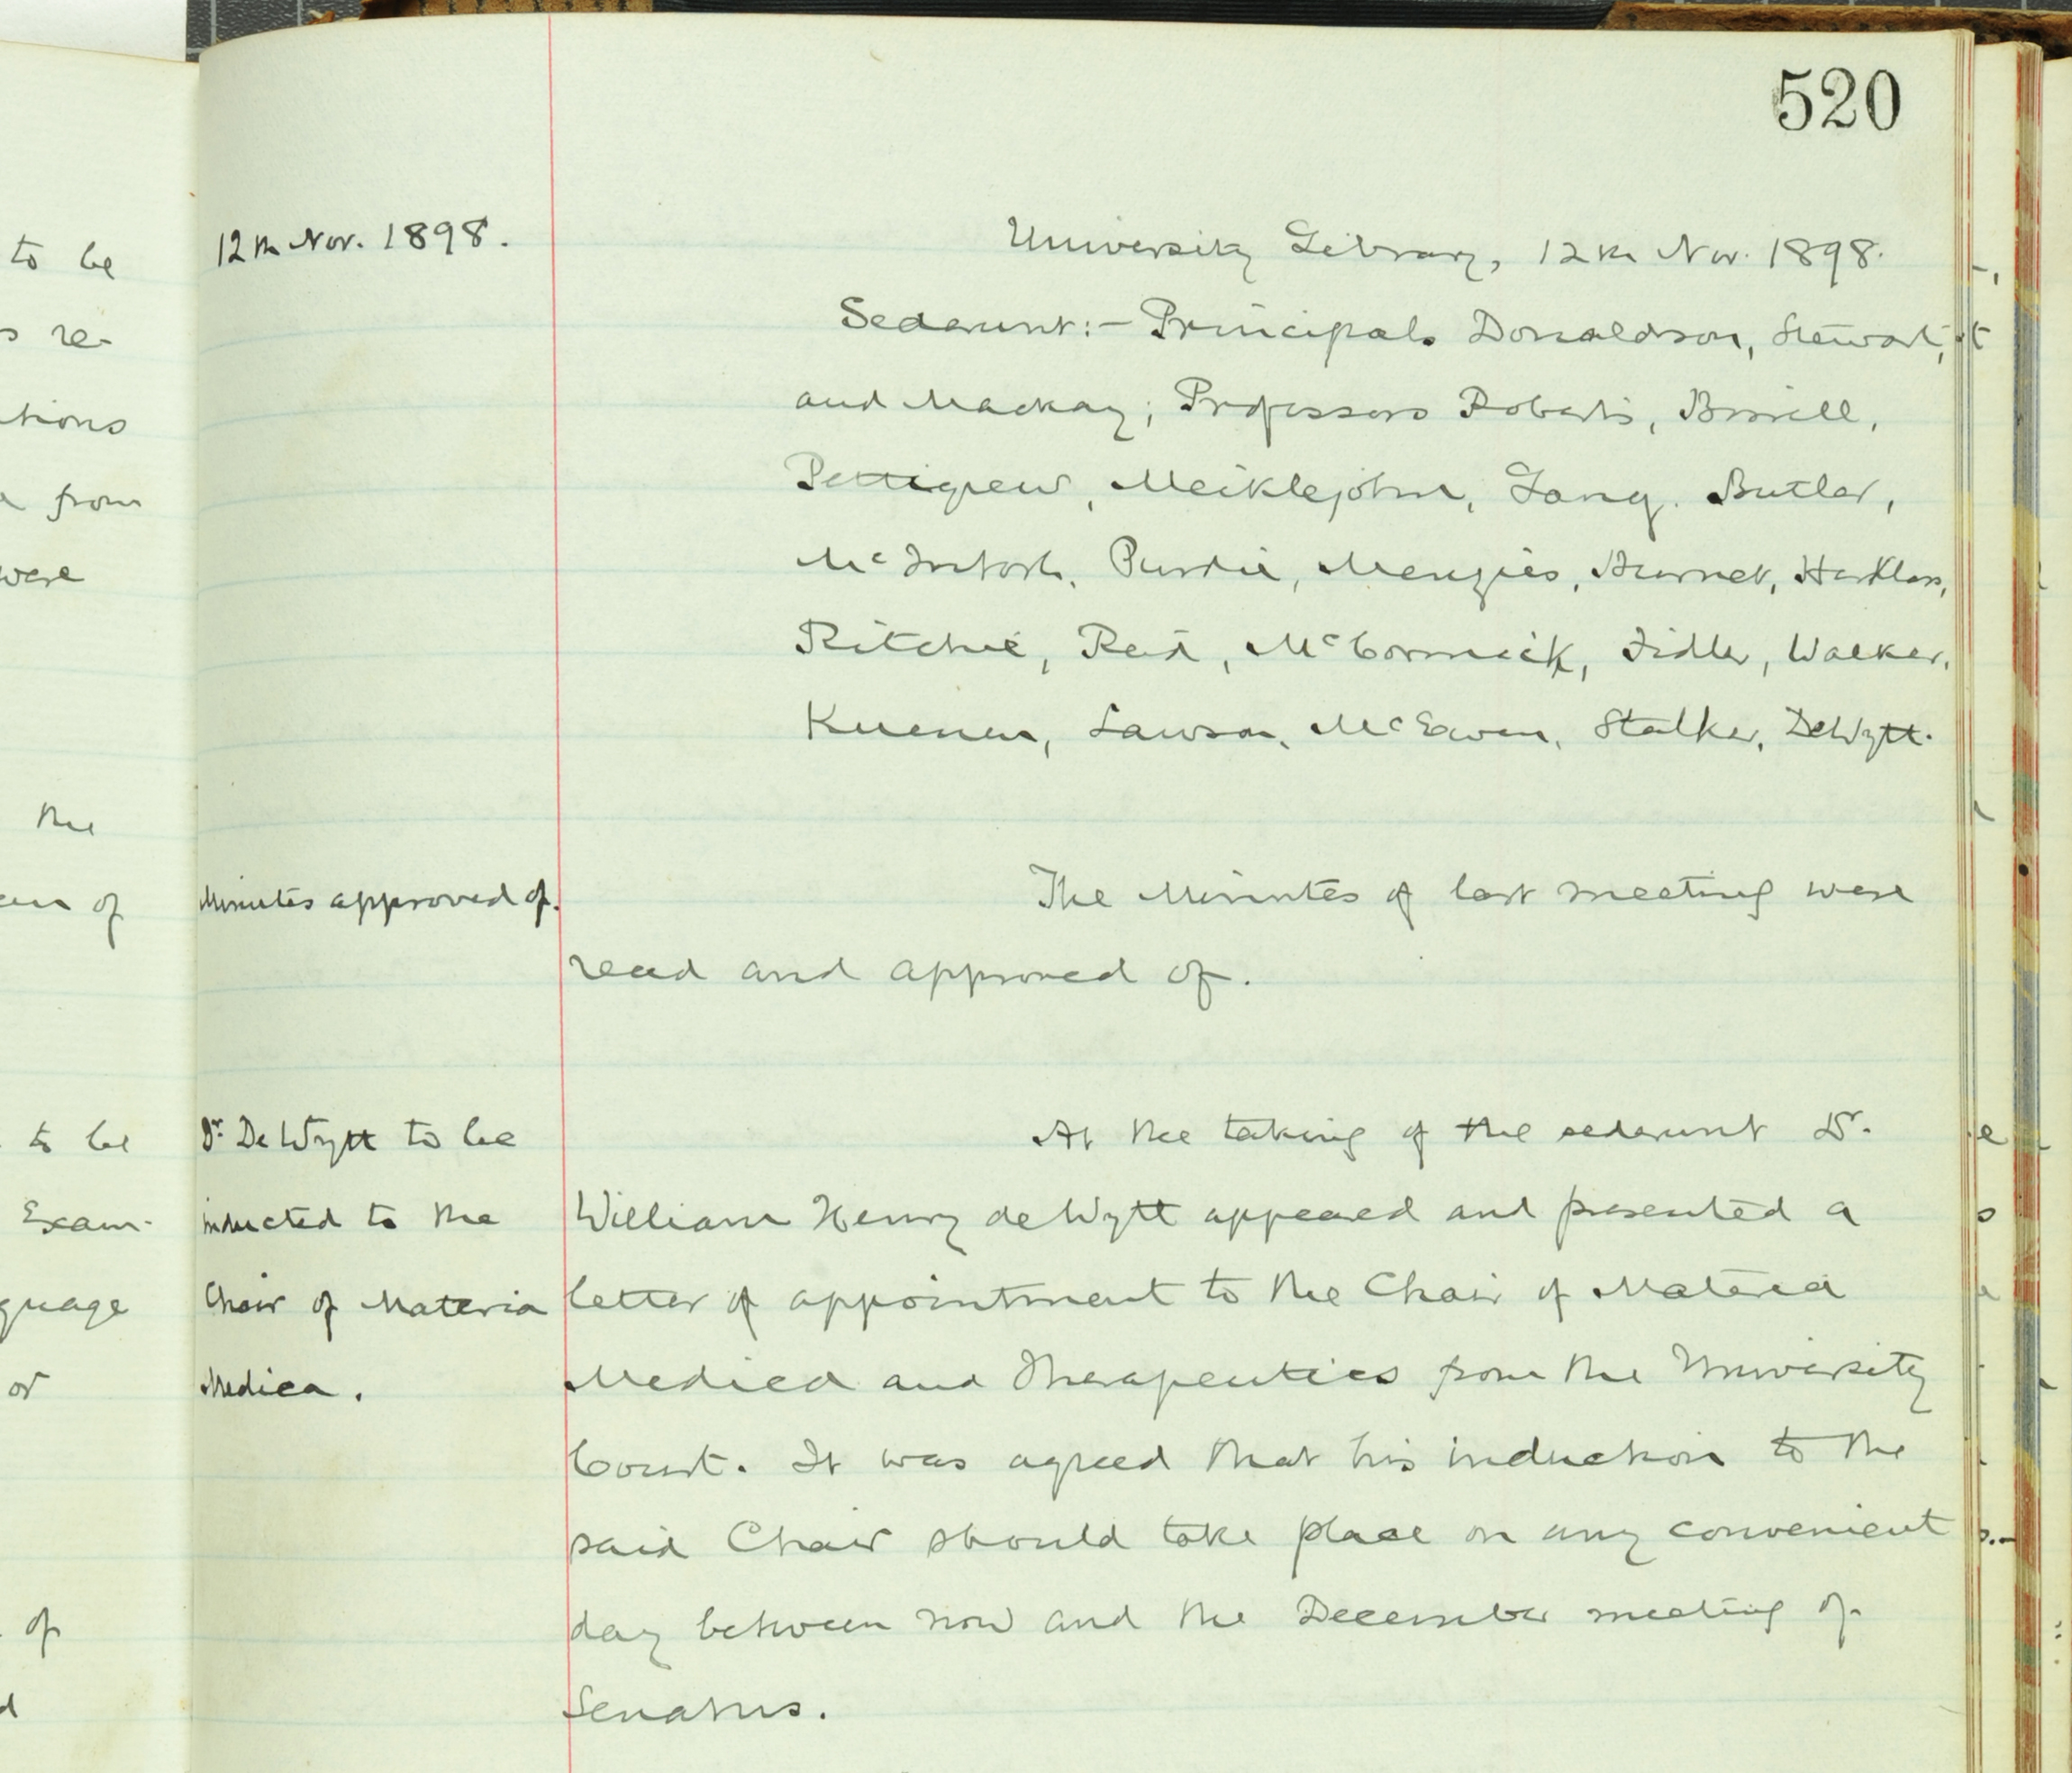 520
12th Nov. 1898.
University Library, 12th Nov. 1898.
Sederunt:- Principals Donaldson, Stewart,
and Mackay; Professors Roberts, Birrell,
Pettigrew, Meiklejohn, Lang. Butler,
McIntosh. Purdie, Menzies, Burnet, Herkless,
Ritchie, Reid, McCormick, Fidler, Walker,
Kuenen, Lawson, McEwen, Stalker, DeWytt.
Minutes approved of.
The Minutes of last meeting were
read and approved of.
Dr. De Wytt to be
inducted to the
Chair of Materia
Medica.
At the taking of the sederunt Dr.
William Henry deWytt appeared and presented a
letter of appointment to the Chair of Materia
Medica and Therapeutics from the University
Court. It was agreed that his induction to the
said Chair should take place on any convenient
day between now and the December meeting of
Senatus.
to be
re-
from
were
the
of
to be
Exam-
guage
or
of